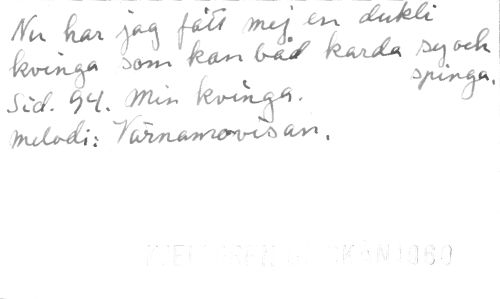 Nu har jag fått mej en dukli
kvinga som kan båd karda sy och
spinga.
Sid. 94. Min kvinga.
melodi: Värnamovisan.